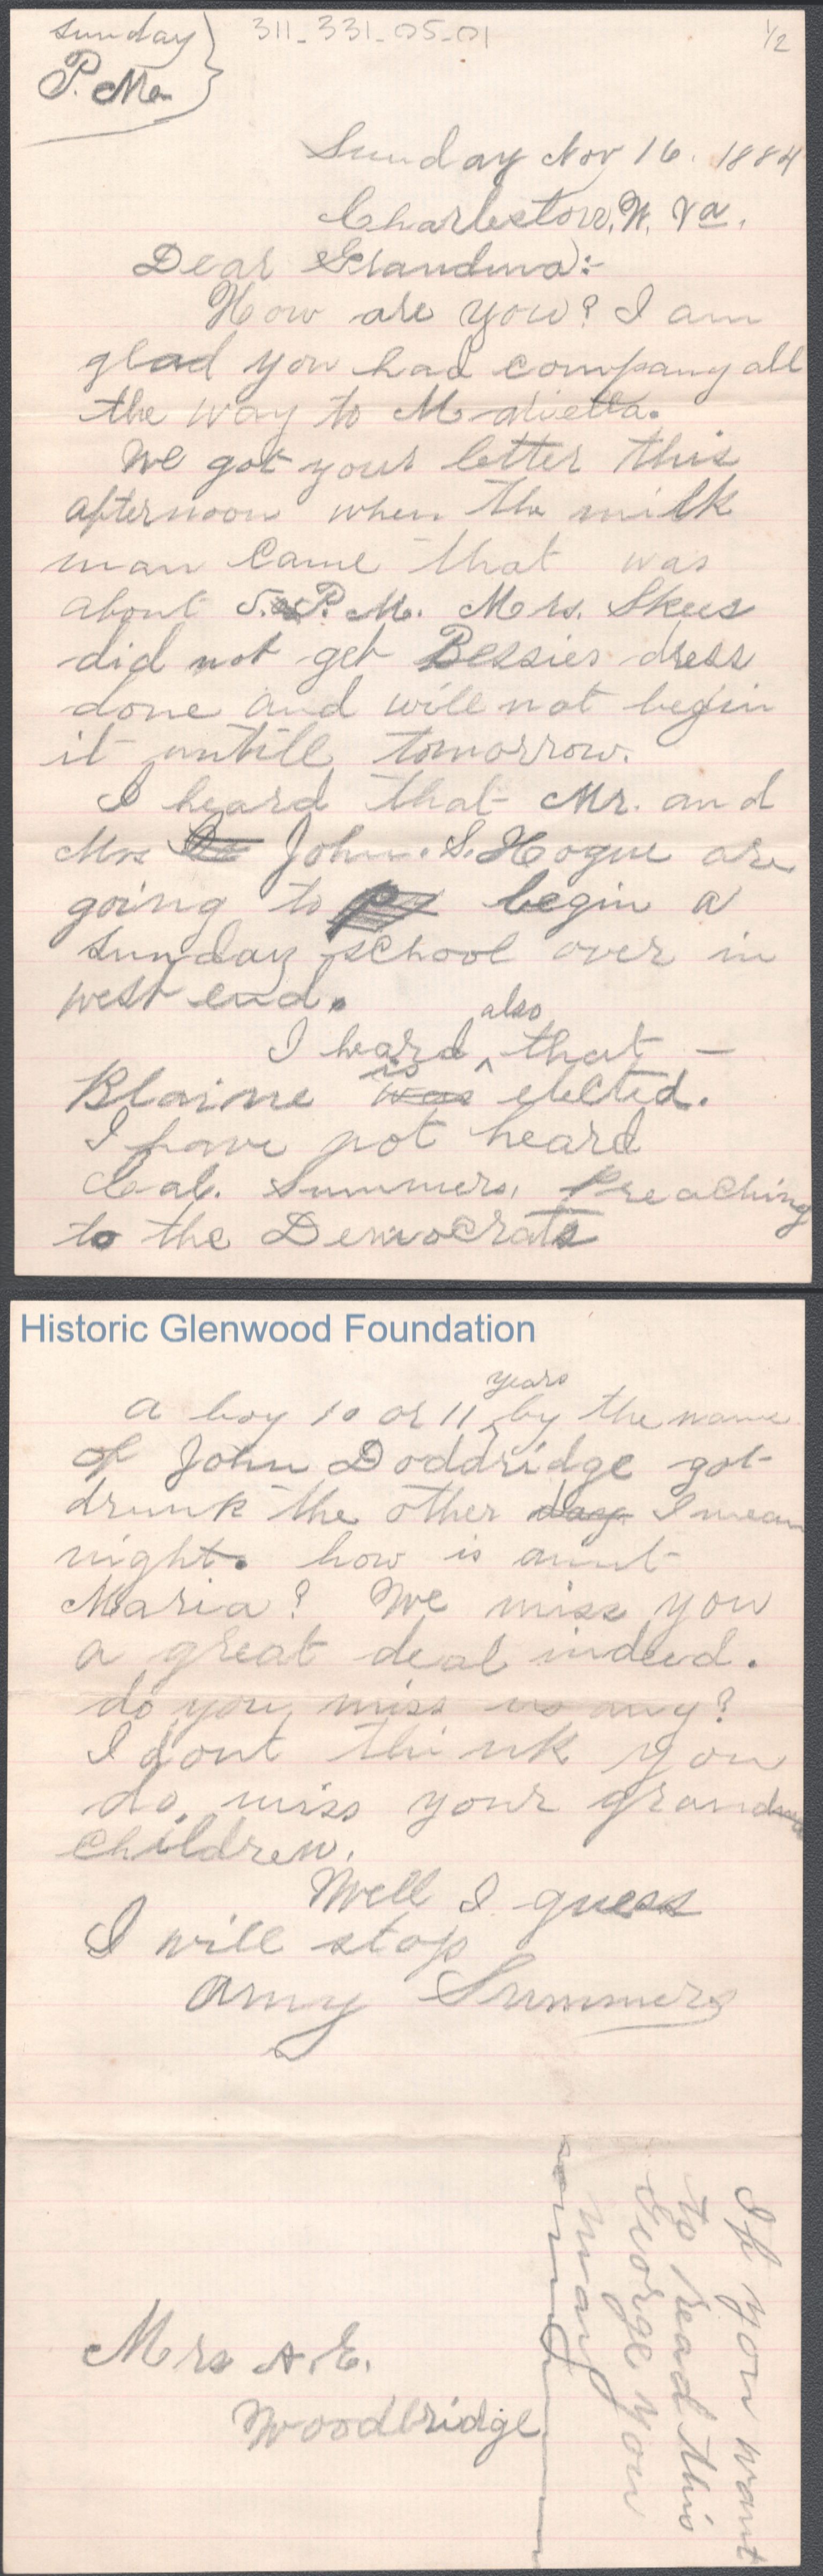 Sunday
P. M.
311-331-05-01
1/2
Sunday Nov 16. 1884
Charleston, W. Va.
Dear Grandma:-
How are you? I am
glad you had company all
the way to Marietta.
We got your letter this
afternoon when the milk
man came that was
about 5. P. M. Mrs. Skees
did not get Bessies dress
done and will not begin
it untill tomorrow.
I heard that Mr. and
Mrs John. S. Hogue are
going to begin a
sunday school over in
west end.
also
I heard ^ that -
is
Blaine was elected.
I have not heard
Cal. Summers, Preaching
to the Democrats
Historic Glenwood Foundation
years
a boy 10 or 11 ^ by the name
of John Doddridge got
drunk the other day I mean
night. how is aunt
Maria? We miss you
a great deal indeed.
do you miss us any?
I dont think you
do, miss your grand
children.
Well I guess
I will stop
Amy Summers
If you want
to read this
George you
may
Mrs A. E.
Woodbridge